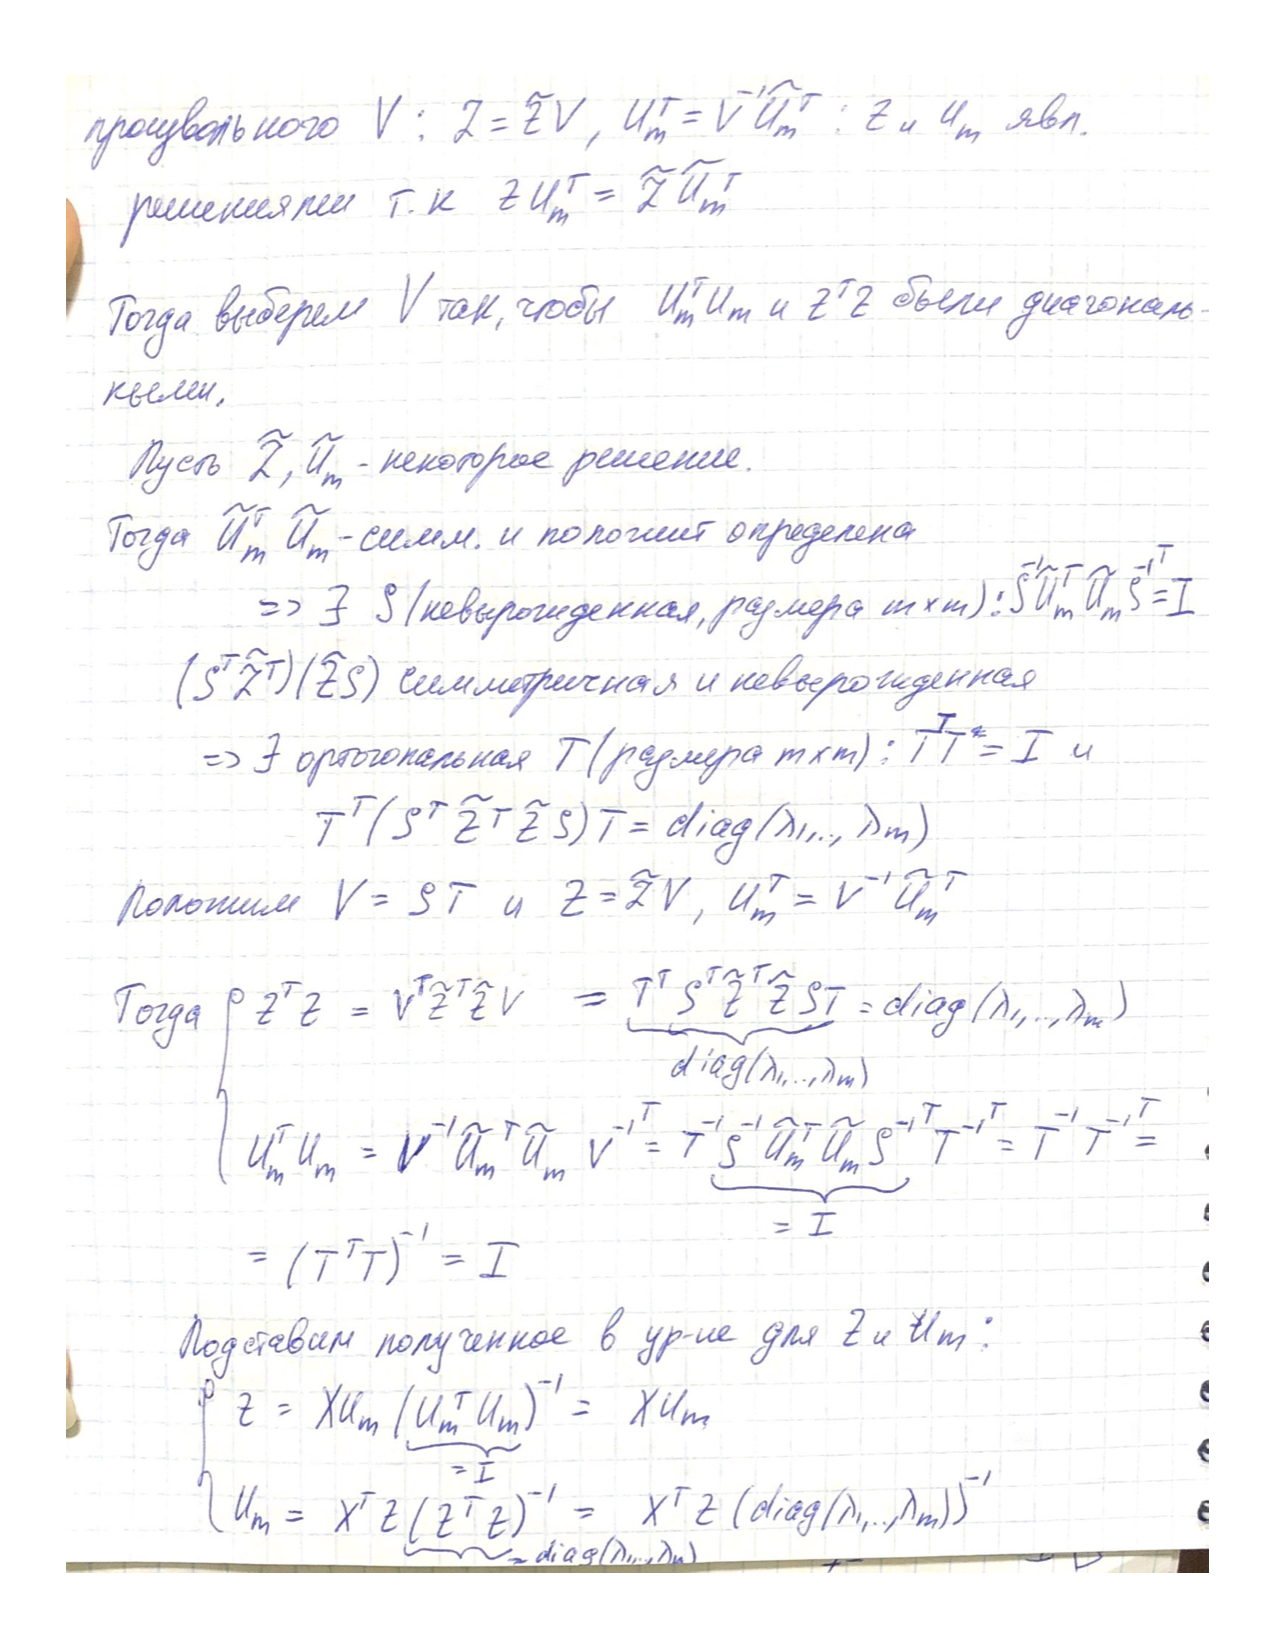 произвольного V : Z = Z̃V, Uₘᵀ = V⁻¹Ũₘᵀ : Z и Uₘ явл.
решениями т.к ZUₘᵀ = Z̃Ũₘᵀ
Тогда выберем V так, чтобы UₘᵀUₘ и ZᵀZ были диагональ-
ными.
Пусть Z̃, Ũₘ - некоторое решение.
Тогда ŨₘᵀŨₘ - симм. и положит определена
=> ∃ S (невырожденная, размера m×m) : S⁻¹ŨₘᵀŨₘS⁻¹ᵀ = I
(SᵀZ̃ᵀ)(Z̃S) симметричная и невырожденная
=> ∃ ортогональная T (размера m×m) : TᵀT = I и
Tᵀ(SᵀZ̃ᵀZ̃S)T = diag(λ₁,.., λₘ)
Положим V = ST и Z = Z̃V, Uₘᵀ = V⁻¹Ũₘᵀ
Тогда { ZᵀZ = VᵀZ̃ᵀZ̃V = TᵀSᵀZ̃ᵀZ̃ST = diag(λ₁,..,λₘ)
diag(λ₁,..,λₘ)
UₘᵀUₘ = V⁻¹ŨₘᵀŨₘV⁻¹ᵀ = T⁻¹S⁻¹ŨₘᵀŨₘS⁻¹ᵀT⁻¹ᵀ = T⁻¹T⁻¹ᵀ =
= I
= (TᵀT)⁻¹ = I
Подставим полученное в ур-ие для Z и Uₘ :
{ Z = XUₘ(UₘᵀUₘ)⁻¹ = XUₘ
= I
Uₘ = XᵀZ(ZᵀZ)⁻¹ = XᵀZ(diag(λ₁,..,λₘ))⁻¹
= diag(λ₁,..,λₘ)